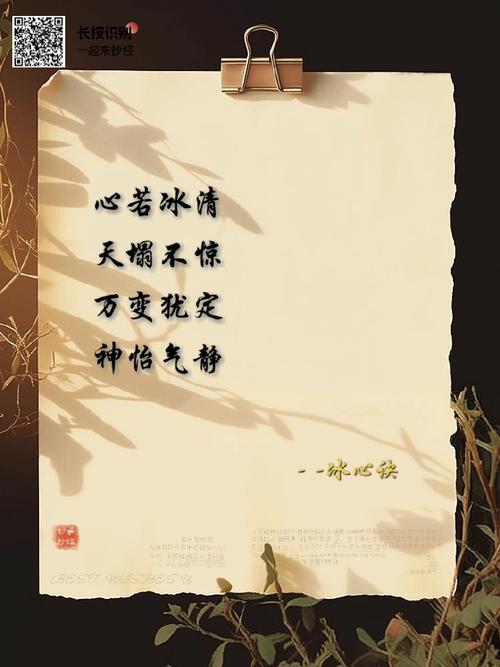 长按识别
一起来抄经
心若冰清
天塌不惊
万变犹定
神怡气静
--冰心诀
BEST WISHES U